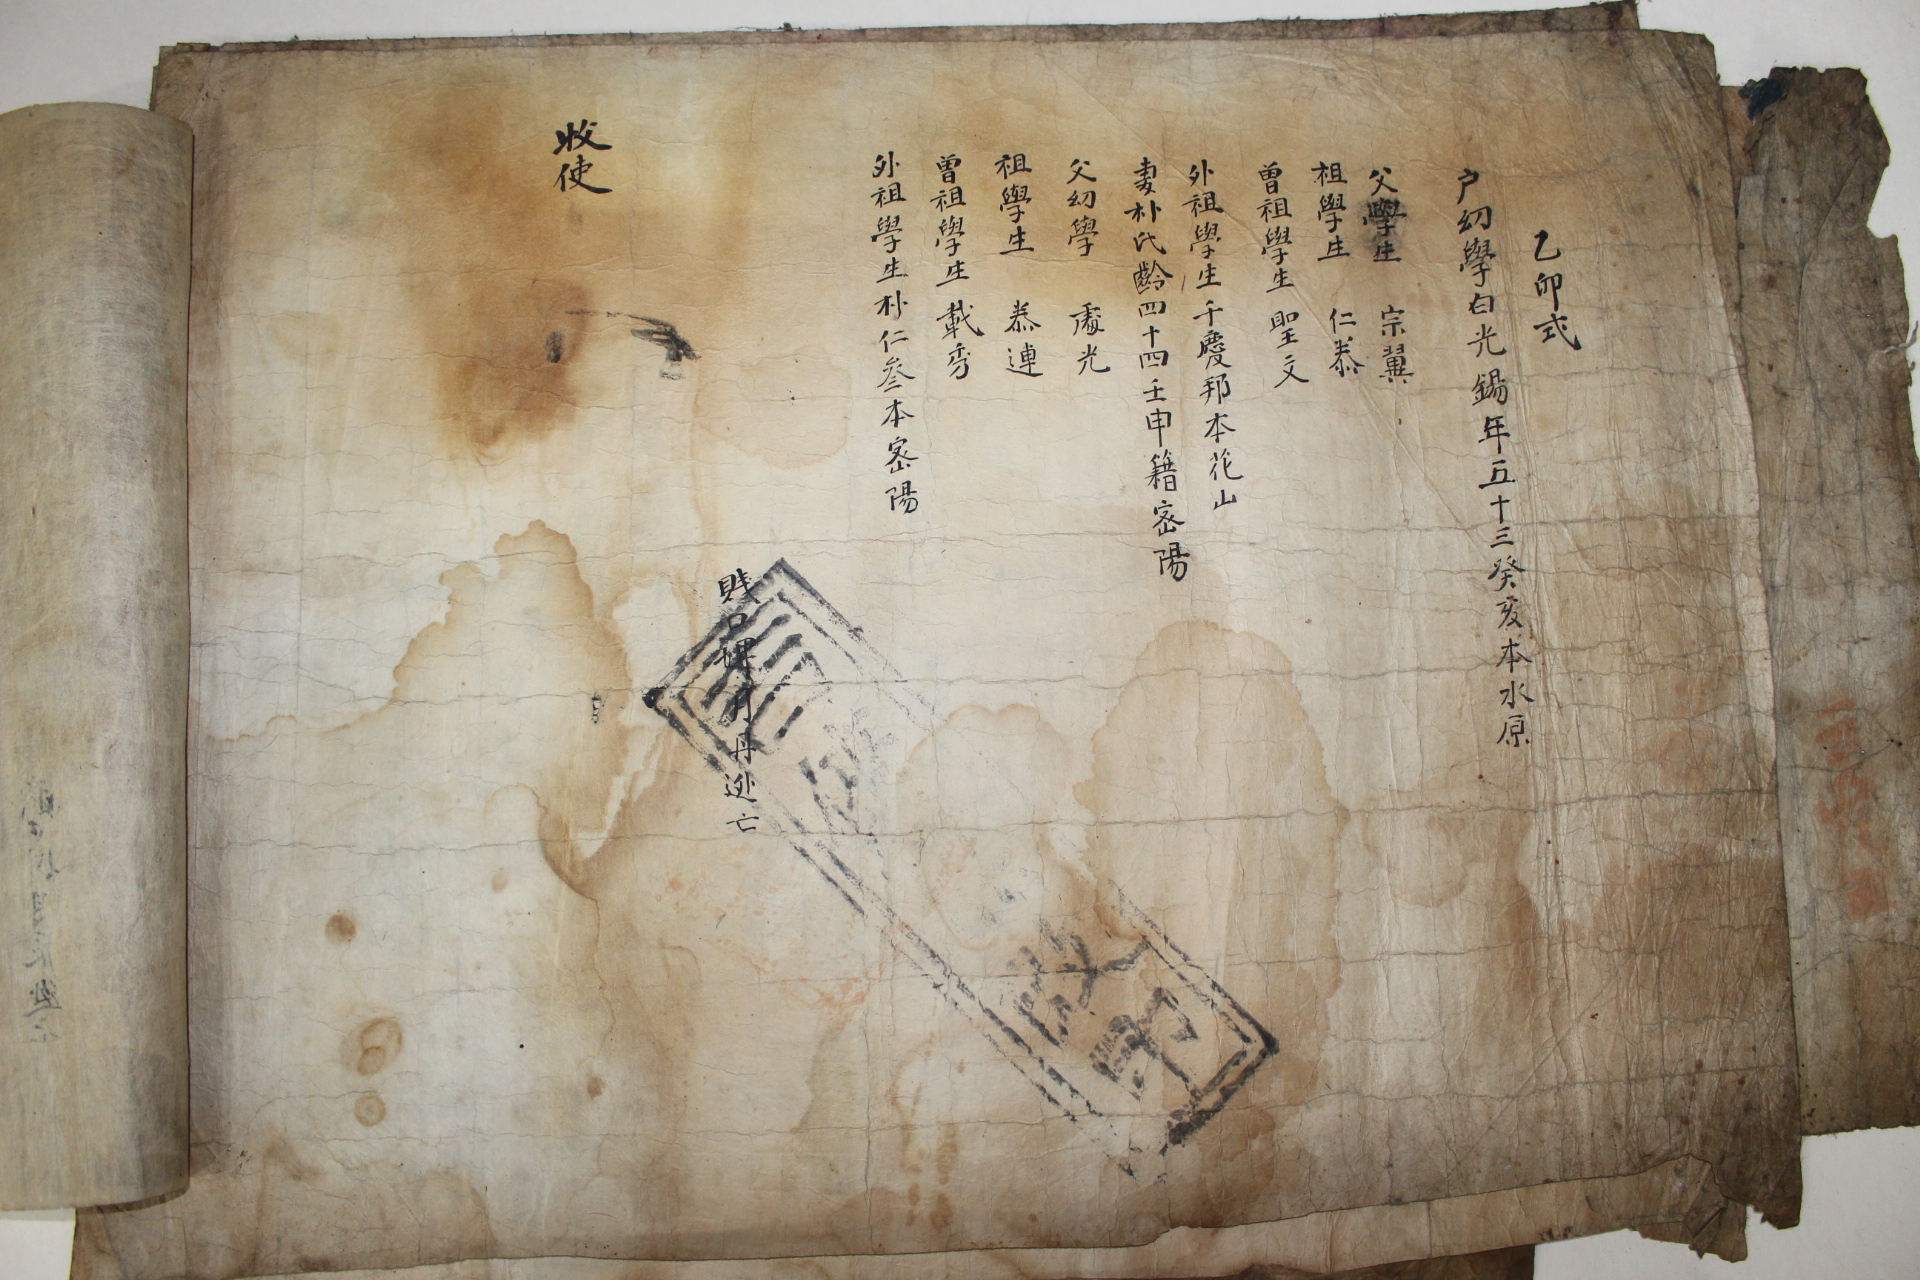 乙卯式
戶幼學白光錫年五十三癸亥本水原
父學生 宗翼
祖學生 仁泰
曾祖學生 聖文
外祖學生千慶邦本花山
妻朴氏齡四十四壬申籍密陽
父幼學 處光
祖學生 泰連
曾祖學生 載秀
外祖學生朴仁叄本密陽
賤口婢 月丹逃亡
收使